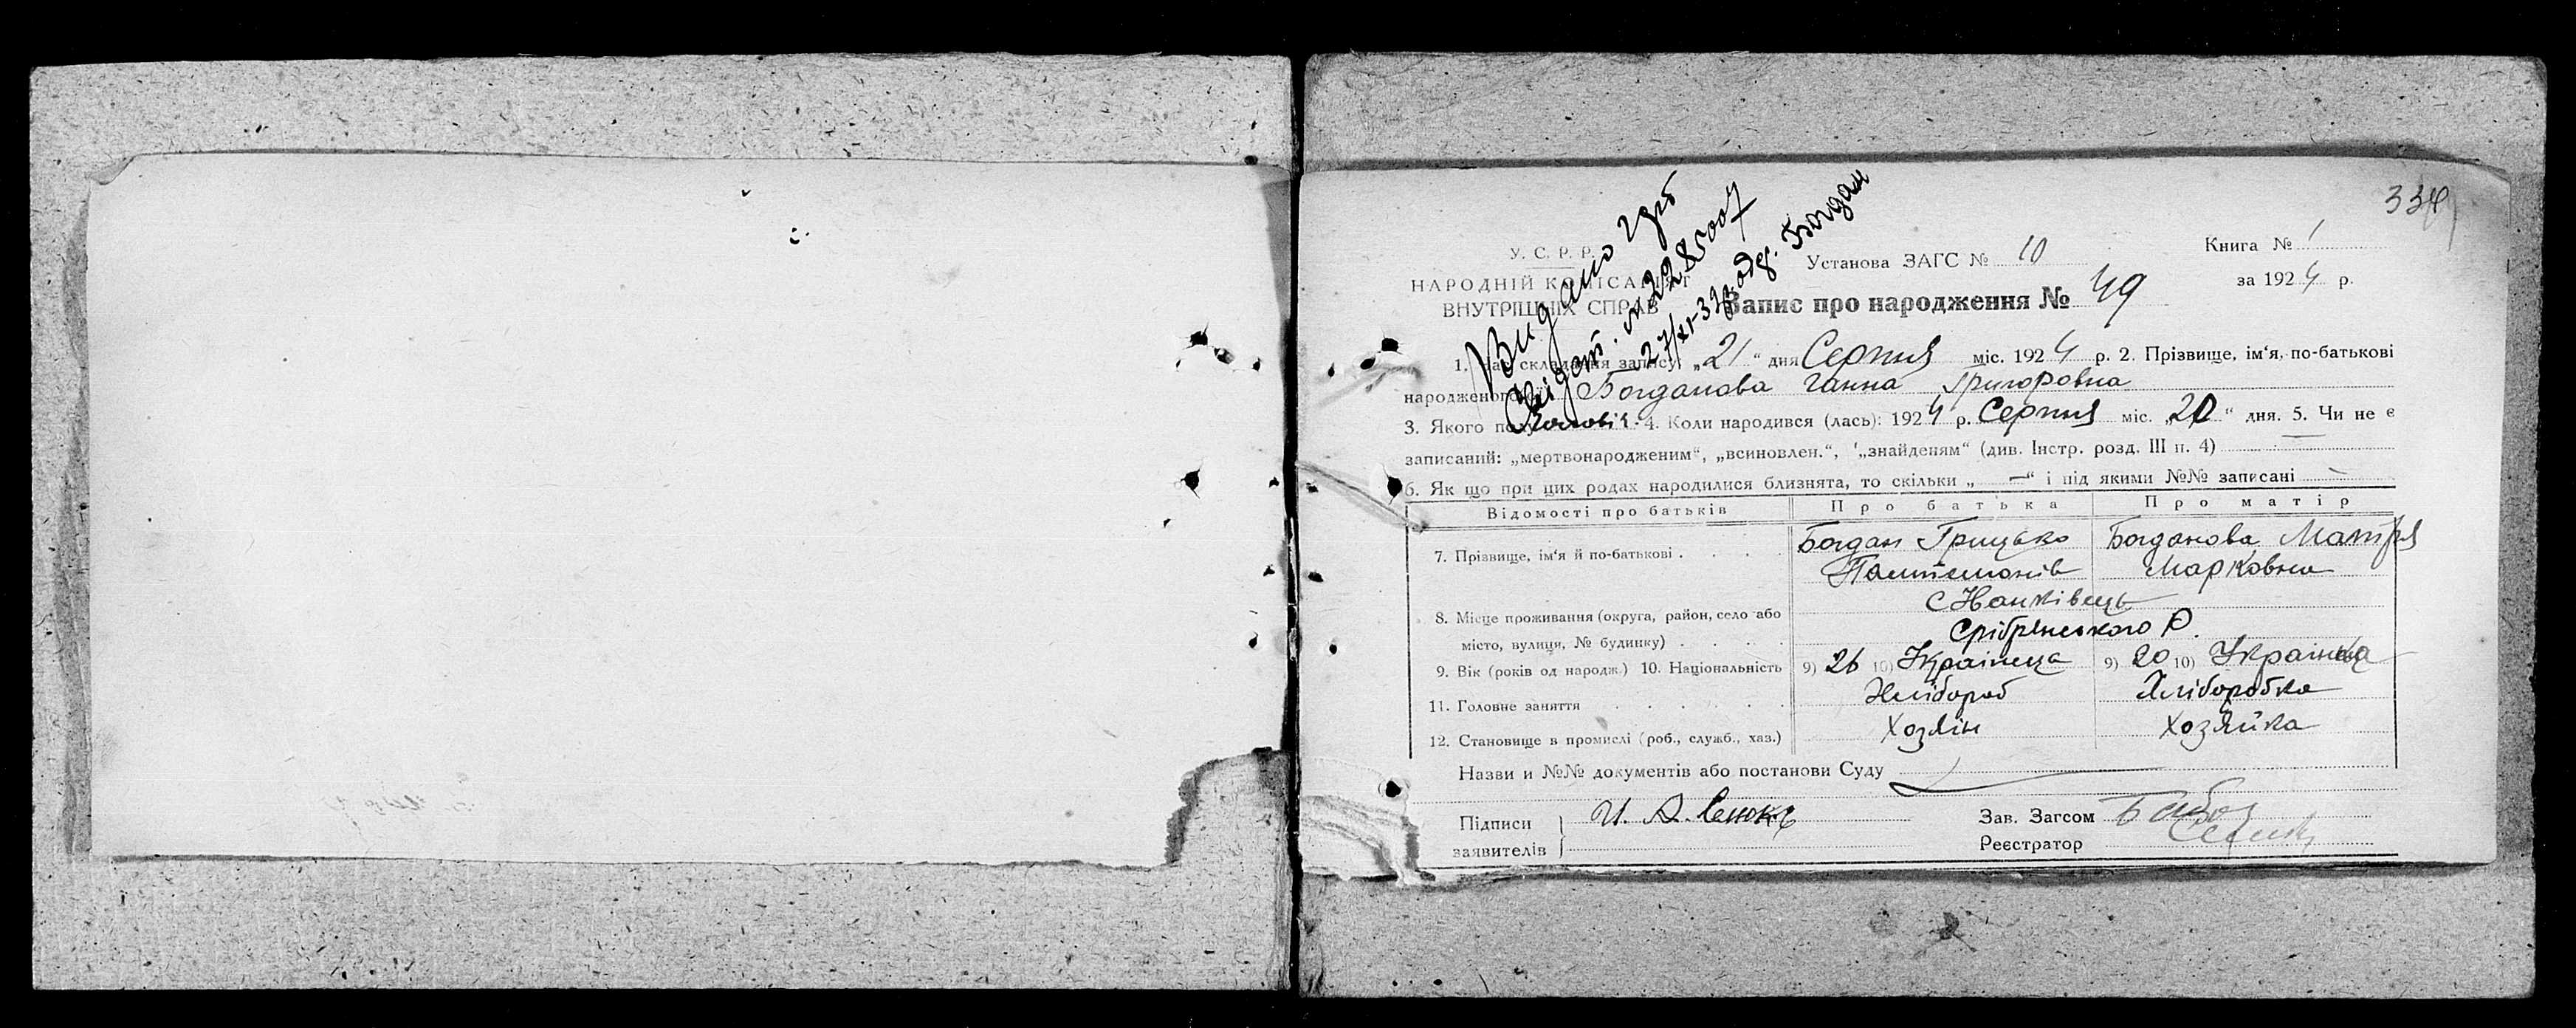 334
У. С. Р. Р.
НАРОДНІЙ КОМІСАРІЯТ
ВНУТРІШНІХ СПРАВ
Установа ЗАГС № 10
Книга № 1
за 1924 р.
Запис про народження № 49
Видано
2285007
Богдан
1. Час складання запису „21“ дня Серпня міс. 1924 р. 2. Прізвище, ім‘я, по-батькові
народженого Богданова Ганна Григоровна
3. Якого полу 4. Коли народився (лась): 1924 р. Серпня міс. „20“ дня. 5. Чи не є
записаний: „мертвонародженим“, „всиновлен.“, „знайденям“ (див. Інстр. розд. III п. 4) —
6. Як що при цих родах народилися близнята, то скільки „—“ і під якими №№ записані —
Відомості про батьків Про батька Про матір
7. Прізвище, ім‘я й по-батькові . . . . Богдан Грицько Богданова Мотря
Марковна
8. Місце проживання (округа, район, село або
місто, вулиця, № будинку) . . . . Срібрянського
9. Вік (років од народж.) 10. Національність 9) 26 10) Українець 9) 20 10) Українка
11. Головне заняття . . . . . Хлібороб Хліборобка
12. Становище в промислі (роб., служб., хаз.) Хозяїн Хозяйка
Назви и №№ документів або постанови Суду
Підписи заявителів И. А.
Зав. Загсом
Реєстратор